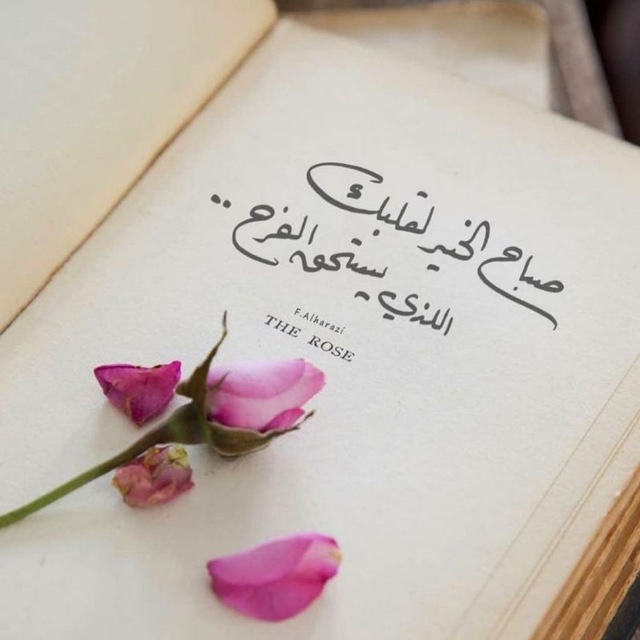 صباح الخير لقلبك
اللذي يستحق الفرح ..
F.Alharazi
THE ROSE